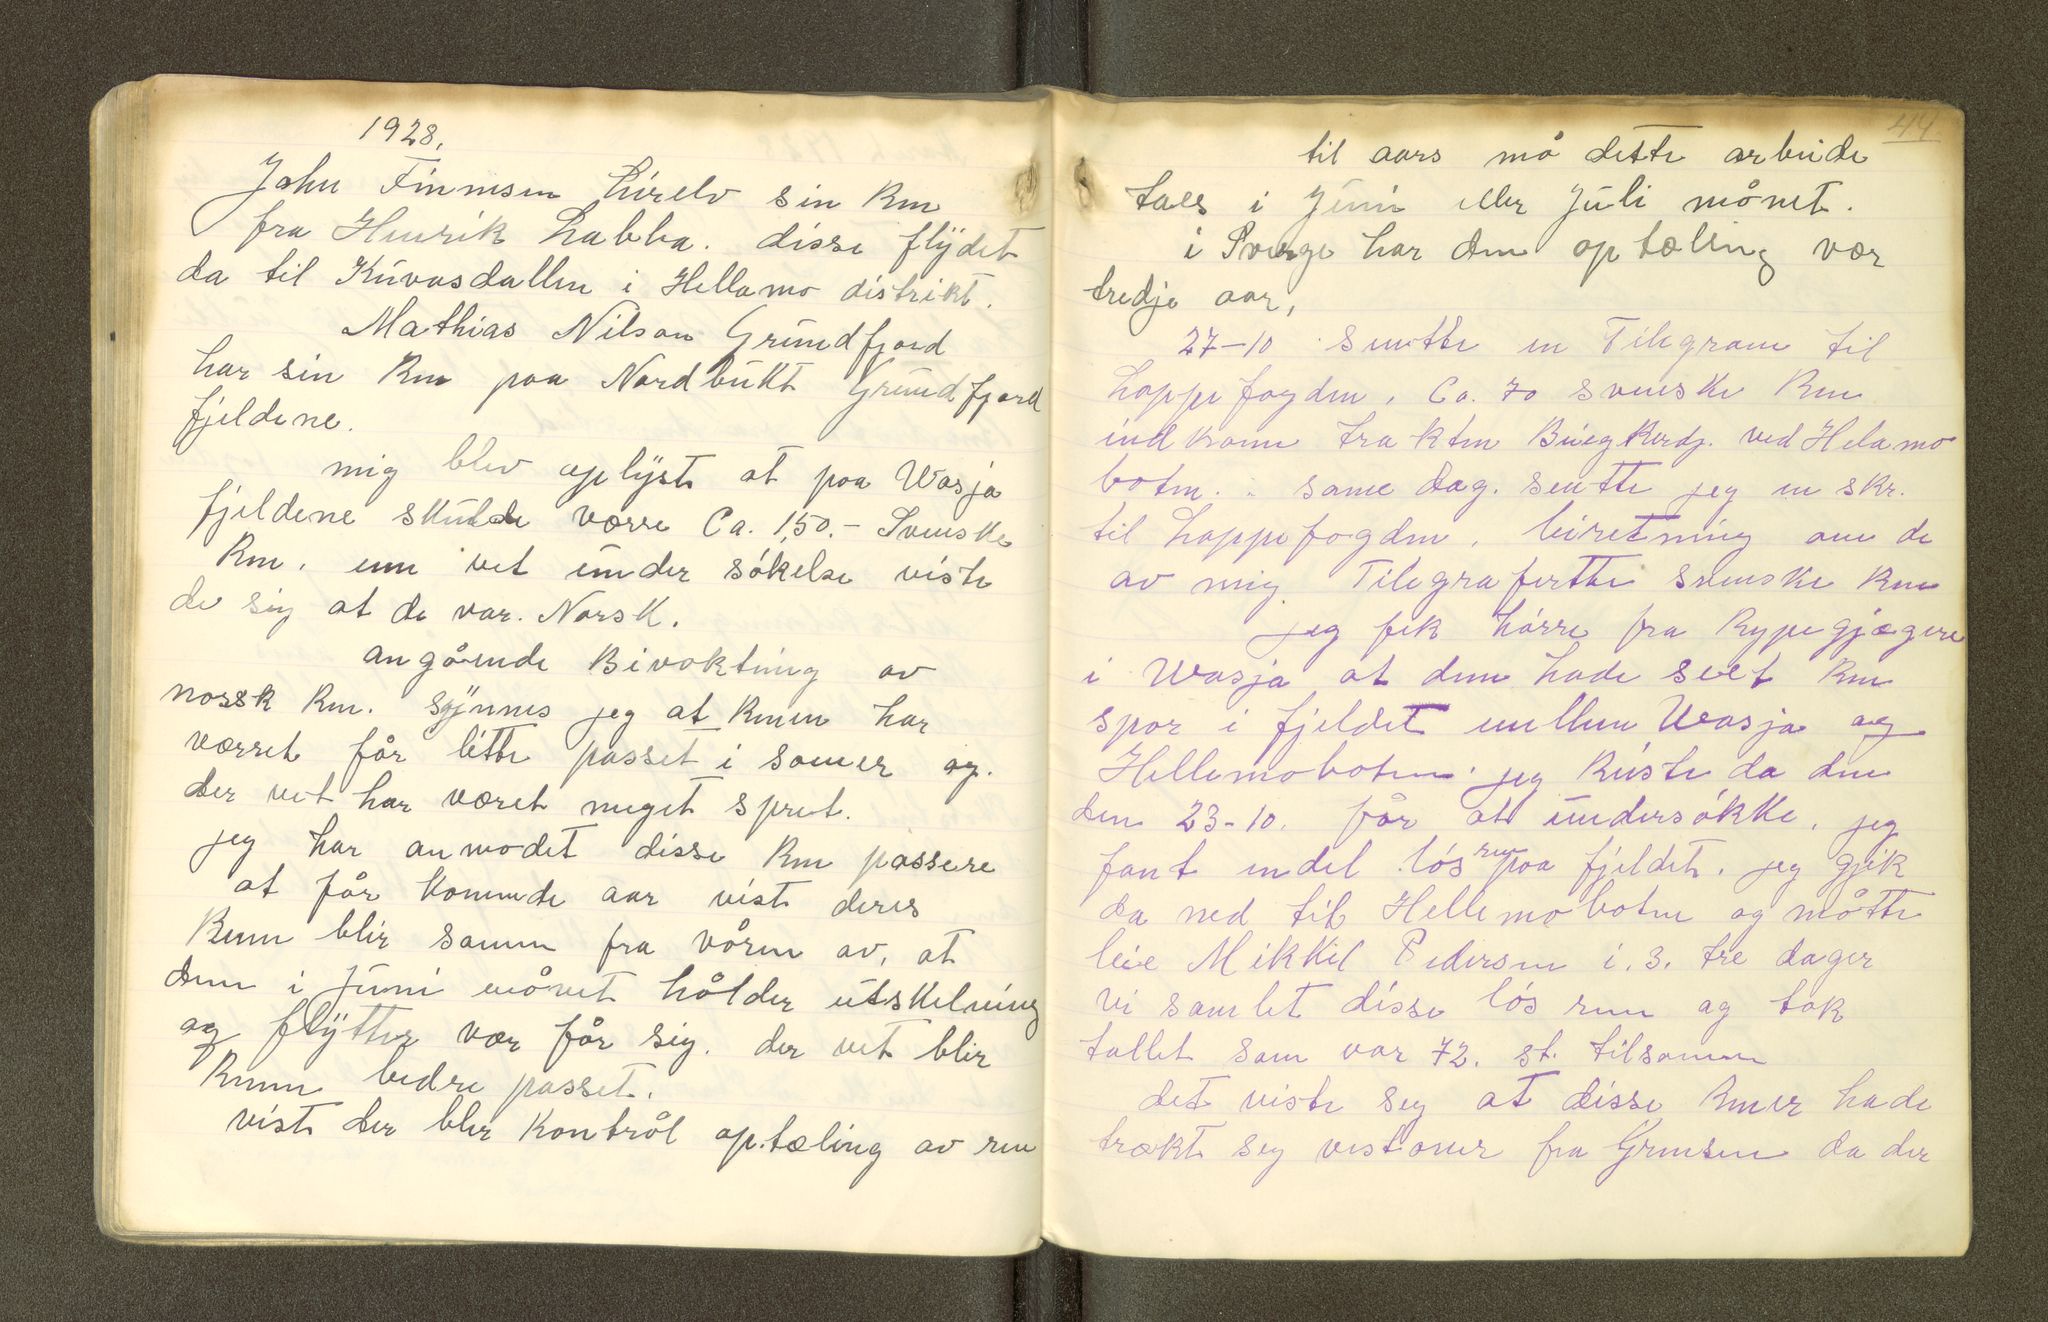 1928.
John Finnsen hirelv sin Ren
fra Henrik Labba. disse flÿdet
da til Kuvasdallen i Hellamo distrikt.
Mathias Nilsan Grundfjord
har sin Ren paa Nordbukt Grundfjord
fjeldene.
mig blev oplÿst at paa Wasja
fjeldene skulde værre Ca. 150.- Svenske
Ren. enn vet under sökelse viste
de sig at de var. Norsk.
angående Bivoktning av
norsk Ren. sÿnnes jeg at Renen har
værret får litte passet i somer og.
der vet har været meget spret.
jeg har anmodet disse Ren passere
at får komende aar vist deres
Renn blir samm fra våren av, at
dem i Juni månet hålder utskelning
og flÿtter vær får sig. der vet blir
Renen bedre passet.
vist der bler kontrål optæling av ren
44.
til aars må dette arbeide
taes i Juni eller Juli månet.
i Sverge har den optæling vær
tredje aar,
27-10 sentte en Telegram til
Lappefogden, Ca. 70 svenske Ren
indkomn trakten Buegkerdj. ved Helamo
boten. same dag. sentte jeg en skr.
til Lappefogden, biretning om de
av mig Telegrafertte svenske Ren
jeg fek hörre fra Rypegjægere
i Wasja at dem hade seet Ren
spor i fjeldet mellem Wasja og
Hellemoboten. jeg Reiste da den
den 23-10. får at undersökke, jeg
fant endel lös ren paa fjeldet. jeg gjik
da ned til Hellemoboten og måtte
leie Mikkel Pedersen i. 3. tre dager
vi samlet disse lös ren og tok
tallet som var 72. st. tilsamen
det viste seg at disse Rener hade
trækt seg vestover fra Grensen da der